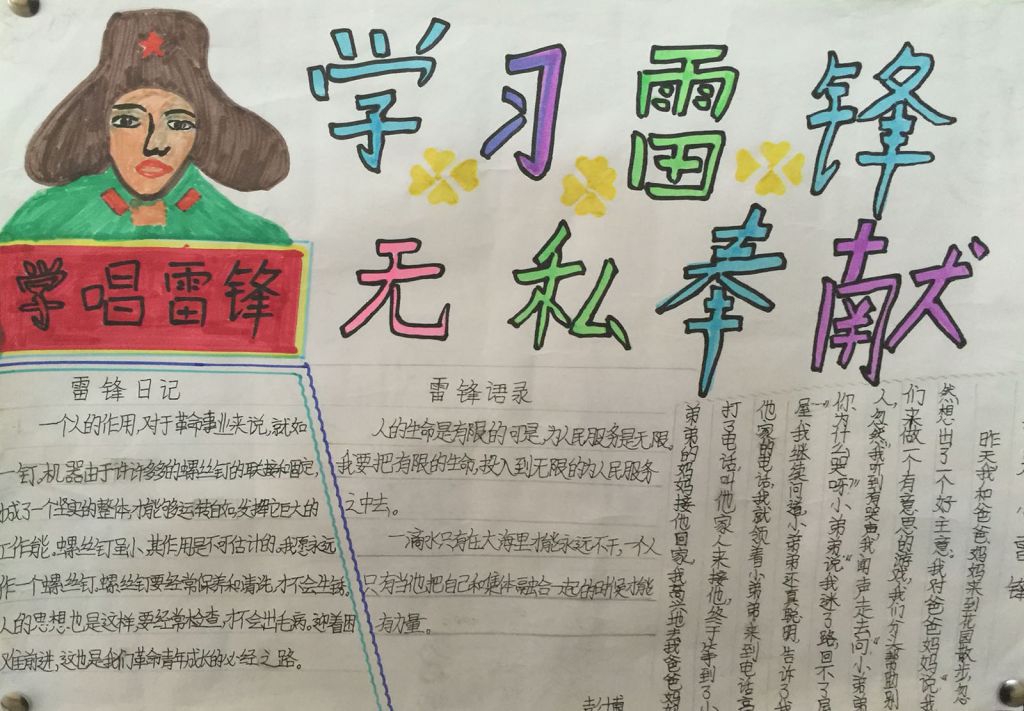 学习雷锋
无私奉献
学唱雷锋
雷锋日记
一个人的作用,对于革命事业来说,就如
一钉。机器由于许许多多的螺丝钉的联接和固定,
成了一个坚实的整体,才能够运转自如,发挥它巨大的
工作能。螺丝钉虽小,其作用是不可估计的。我愿永远
作一个螺丝钉。螺丝钉要经常保养和清洗,才不会生锈。
人的思想也是这样,要经常检查,才不会出毛病。迎着困
难前进,这也是我们革命青年成长的必经之路。
雷锋语录
人的生命是有限的可是,为人民服务是无限,
我要把有限的生命,投入到无限的为人民服务
之中去。
一滴水只有在大海里才能永远不干,一个人
只有当他把自己和集体融合一起的时候才能
有力量。
昨天我和爸爸妈妈来到花园散步,忽
然想出了一个好主意。我对爸爸妈妈说我
们来做一个有意思的游戏,我们今天帮助别
人,忽然我听到有哭声我闻声走去问小弟弟
你为什么哭呀小弟弟说我迷了路,回不了
屋。我继续问道小弟弟还真聪明,告诉了我
他家的电话,我就领着小弟弟来到电话亭
打了电话,叫他家人来接他,终于等到了小
弟弟的妈妈接他回家,我高兴地去我爸爸妈